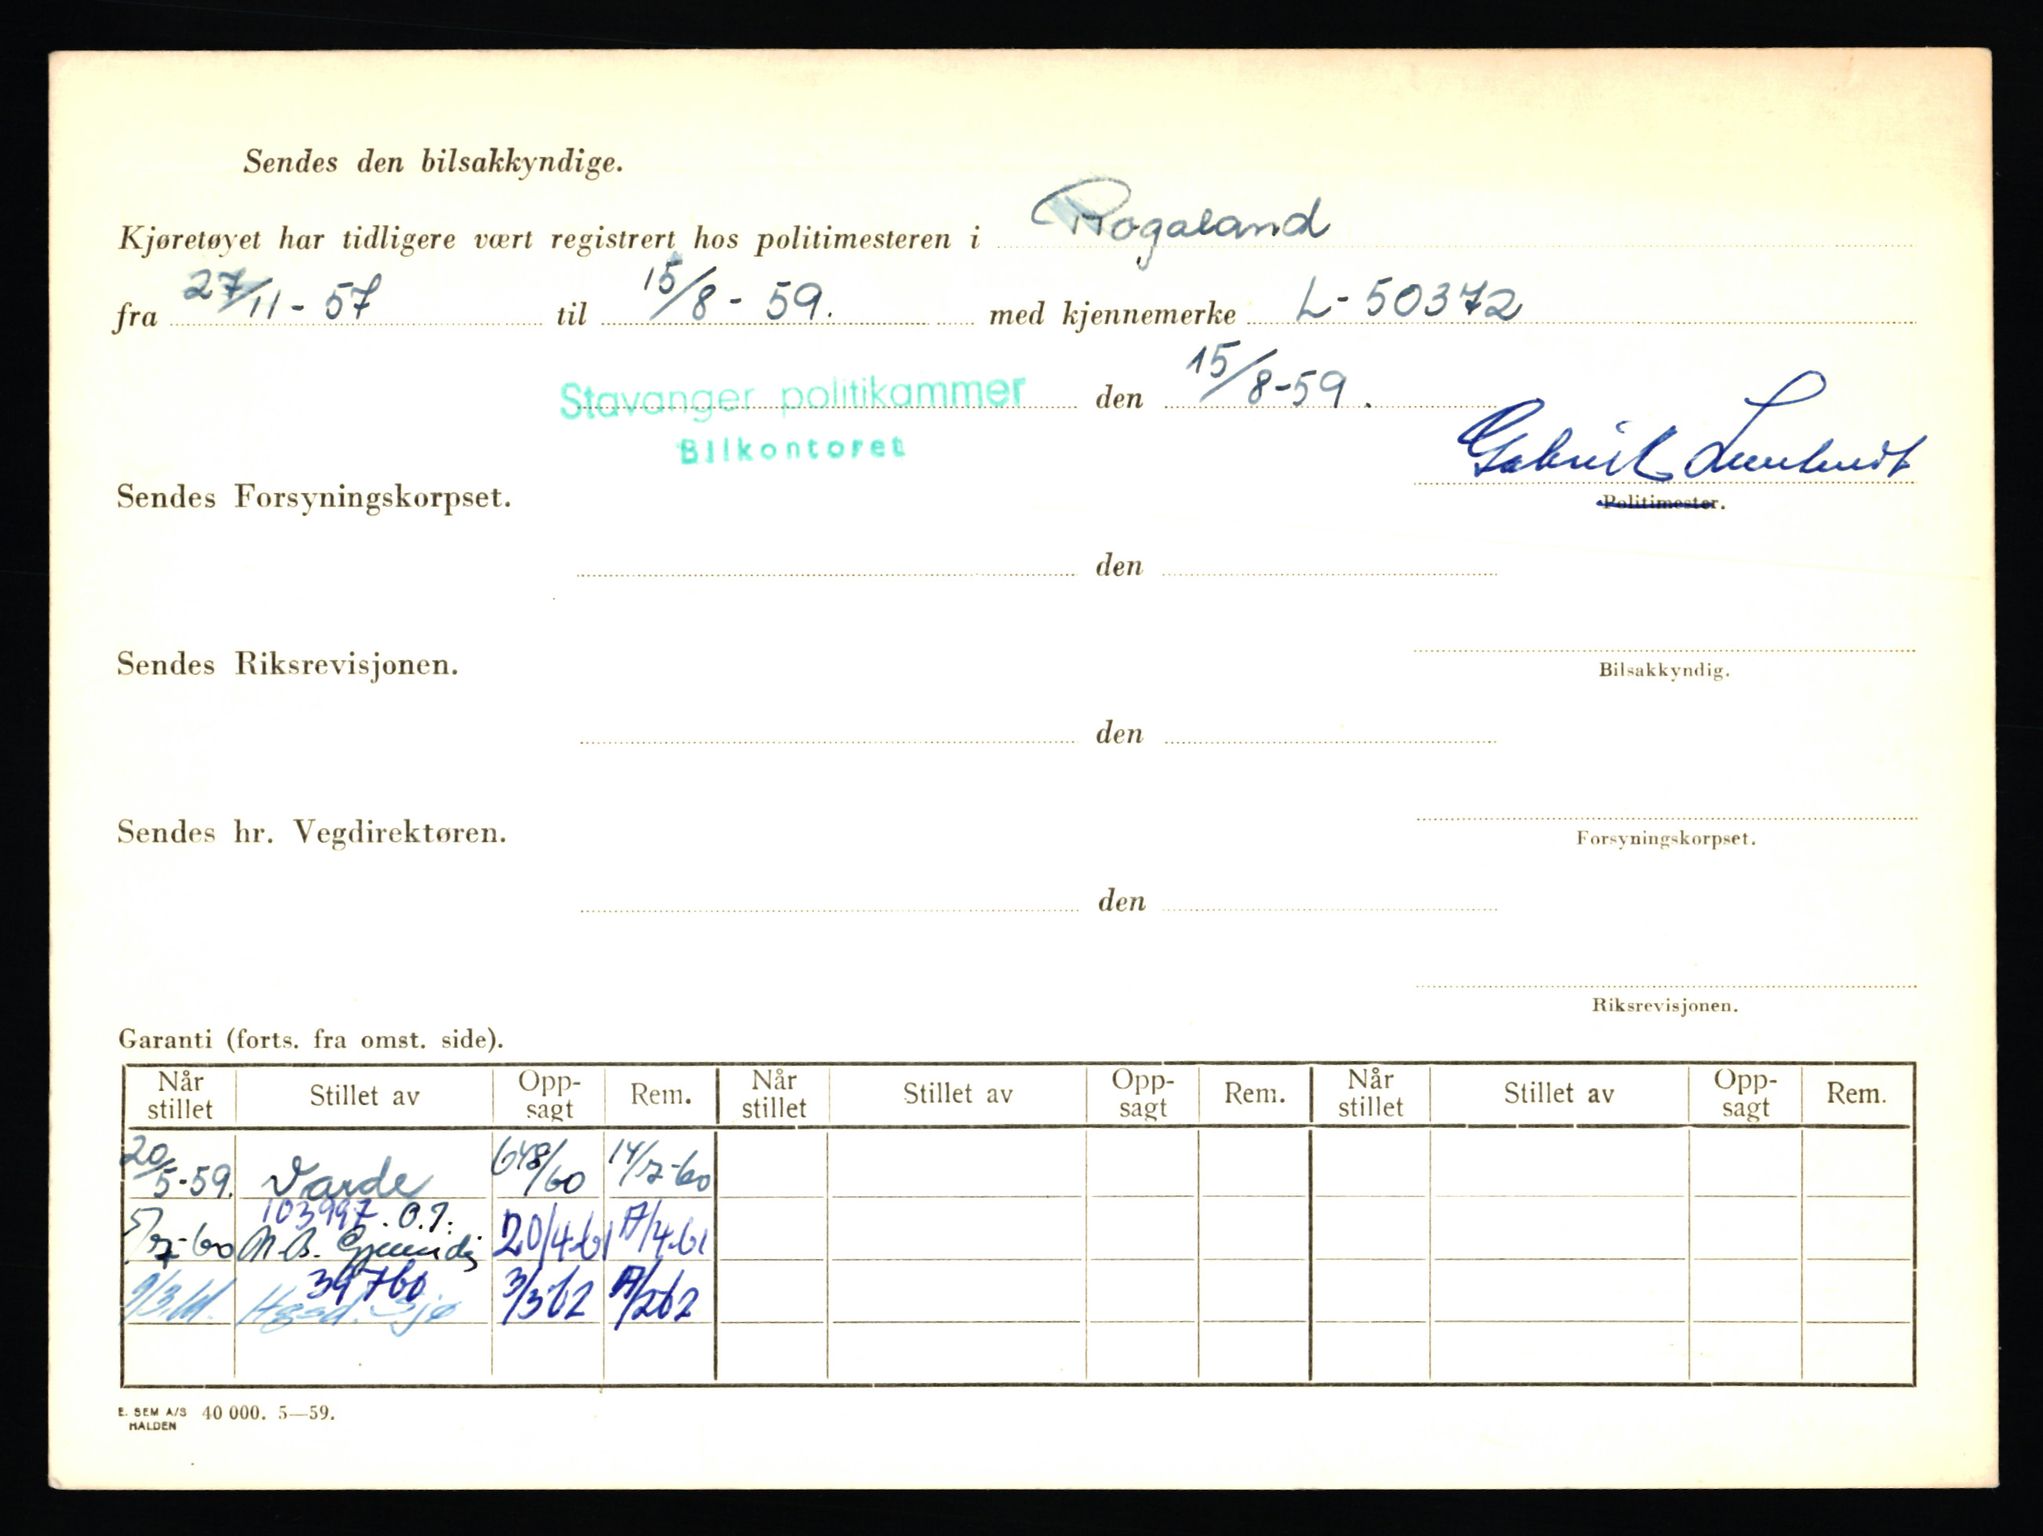 Sendes den bilsakkyndige.
Kjøretøyet har tidligere vært registrert hos politimesteren i Rogaland
fra 27/11-57 til 15/8-59. med kjennemerke L-50372
Stavanger politikammer den 15/8-59.
Bilkontoret
Gabriel
Sendes Forsyningskorpset. Politimester.
den
Sendes Riksrevisjonen. Bilsakkyndig.
den
Sendes hr. Vegdirektøren. Forsyningskorpset.
den
Riksrevisjonen.
Garanti (forts. fra omst. side).
Når stillet Stillet av Opp-sagt Rem. Når stillet Stillet av Opp-sagt Rem. Når stillet Stillet av Opp-sagt Rem.
20/5-59. Varde 648/60 14/7-60
103997. O.J.
5/7-60 20/4-61 /4-61
39760
9/3.61. Sjø 3/3 62 /262
E. SEM A/S HALDEN 40 000. 5—59.